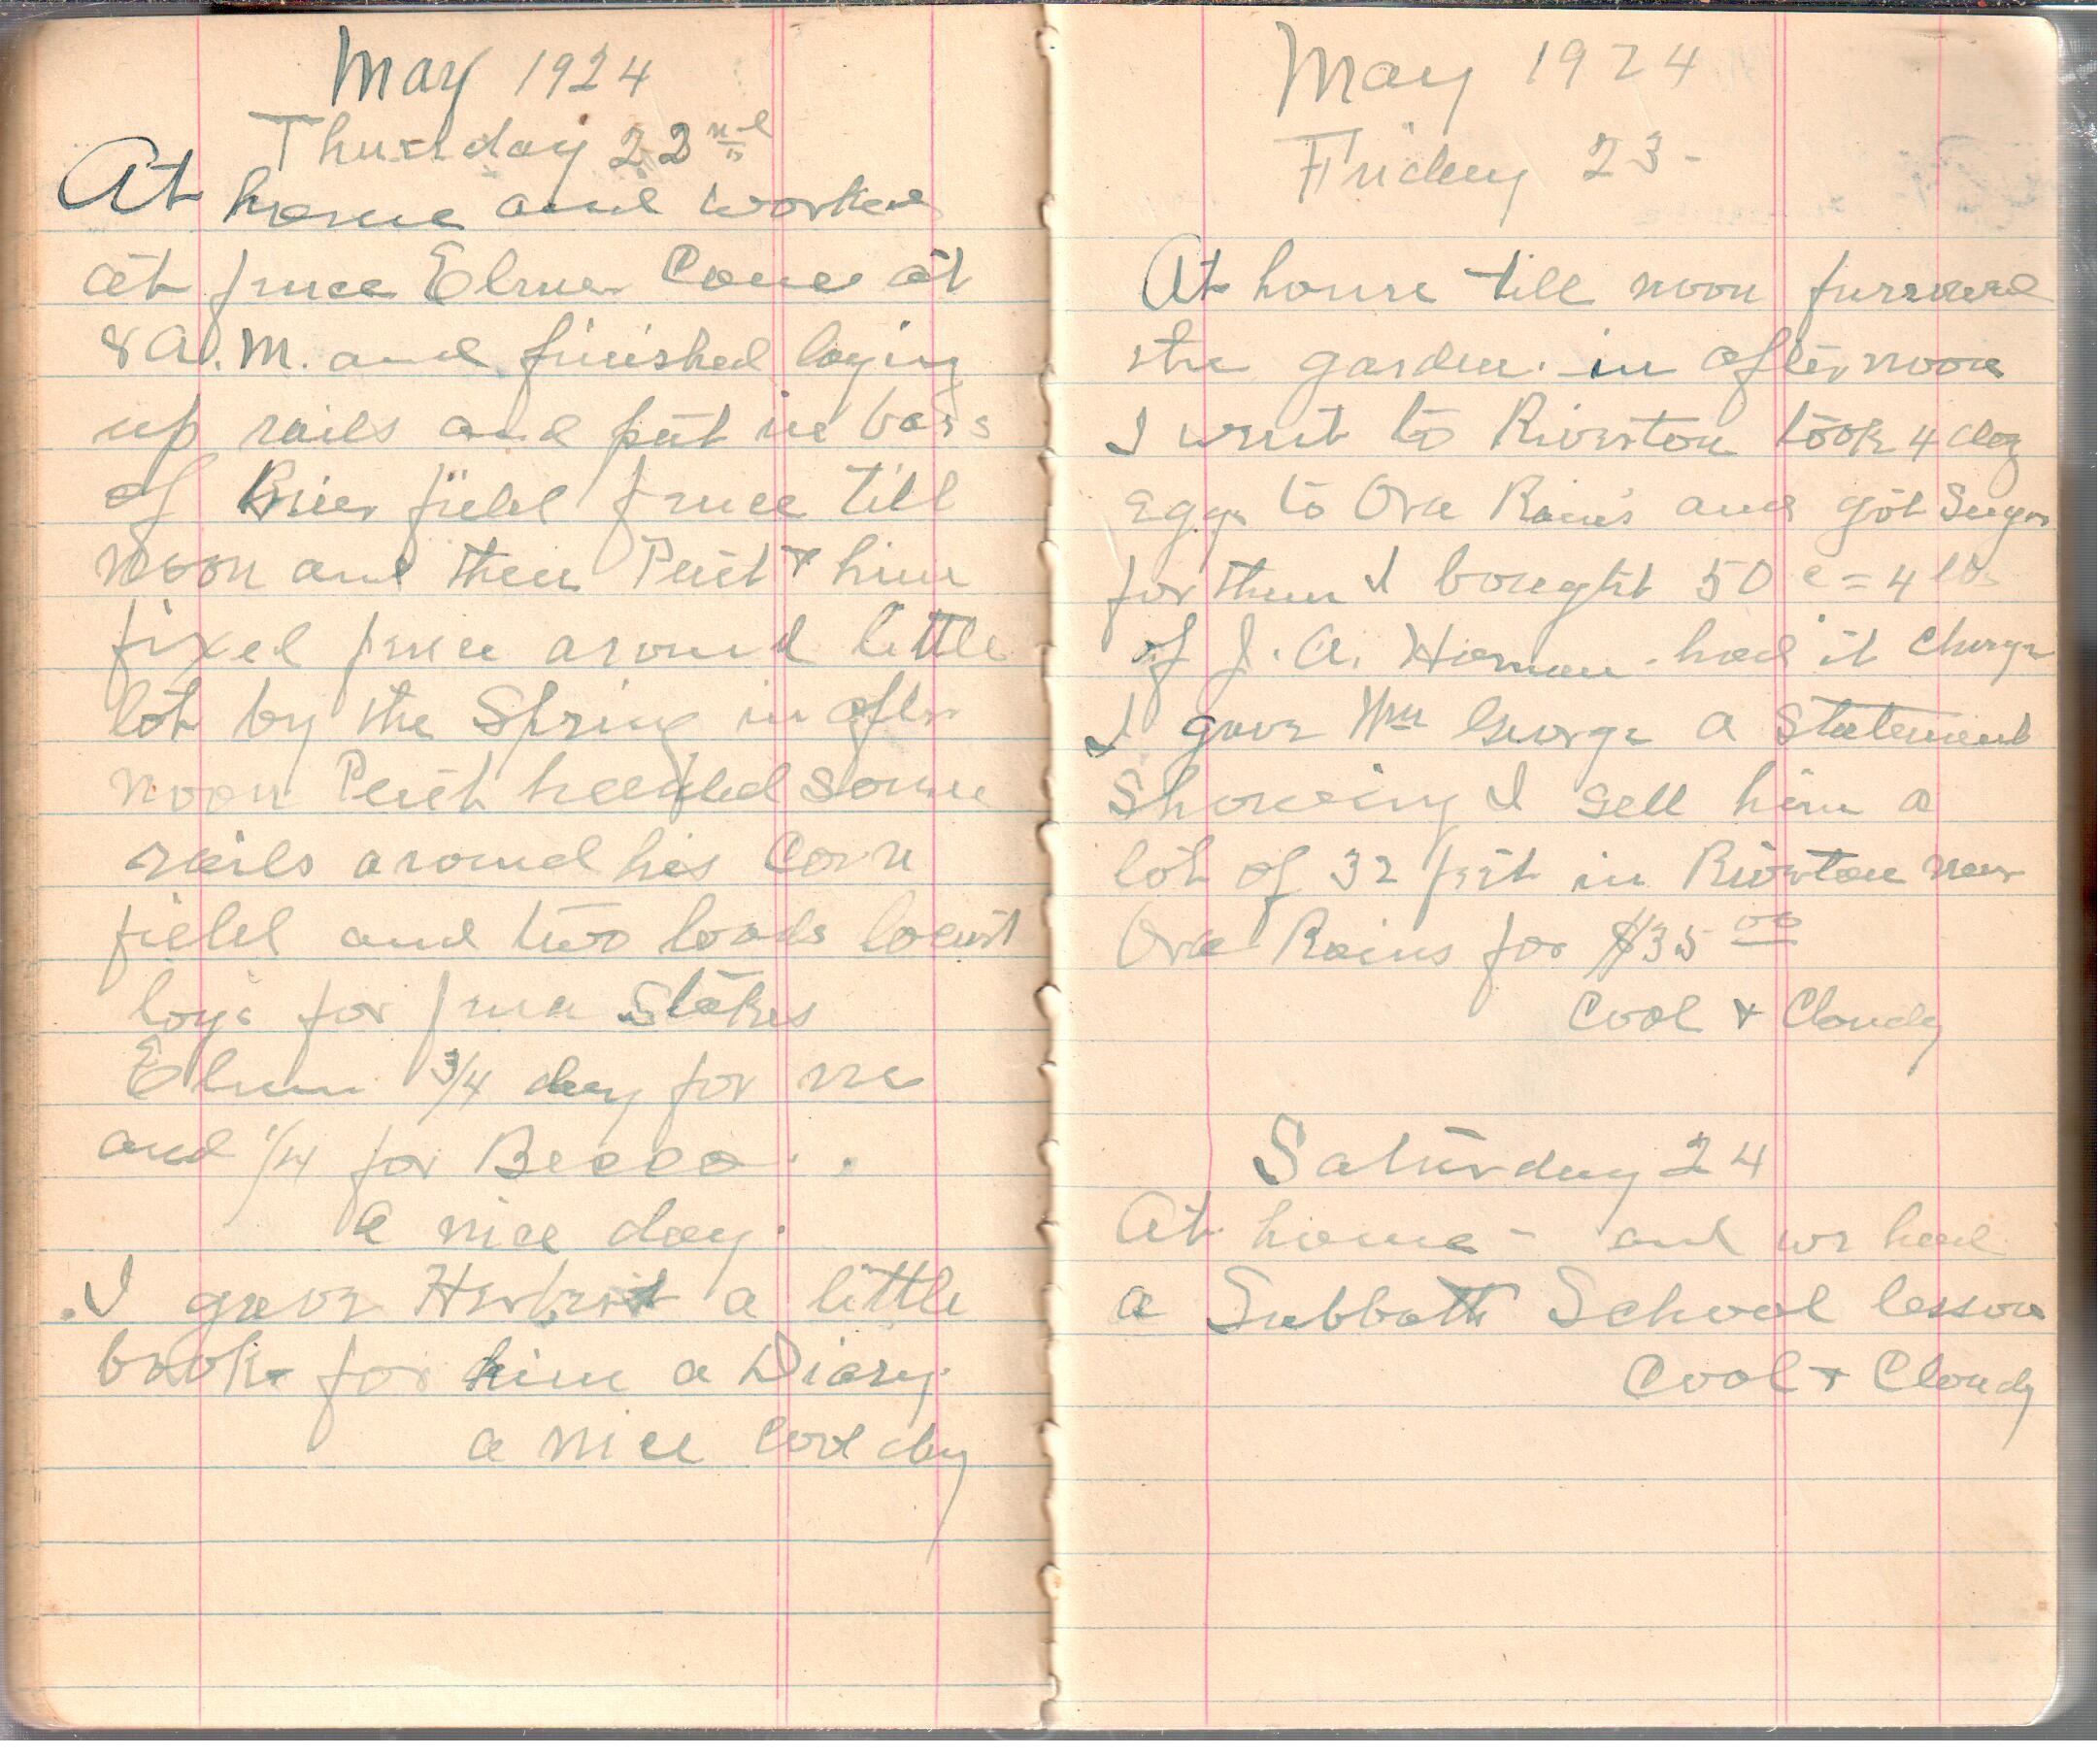 May 1924
Thursday 22nd
At home and worked
at fence Elmer Come at
8 A.M. and finished laying
up rails and put in bars
of Brier field fence till
noon and then & him
fixed fence around little
lot by the Spring in after
noon headed some
rails around his Corn
field and two loads locust
logs for fence Stakes
Elmer 3/4 day for me
and 1/4 for
a nice day.
I gave Herbert a little
book for him a Diary
a nice Cool day
May 1924
Friday 23-
At house till noon furrowed
the garden. in afternoon
I went to Riverton took 4 doz
eggs to Ova Rains and got Sugar
for them I bought 50 c = 4 lbs
of J. A. Homan had it Charge
I gave Wm George a Statement
Showing I sell him a
lot of 32 feet in Riverton near
Ova Rains for $35 00
Cool & Cloudy
Saturday 24
At home - and we had
a Sabbath School lesson
Cool & Cloudy